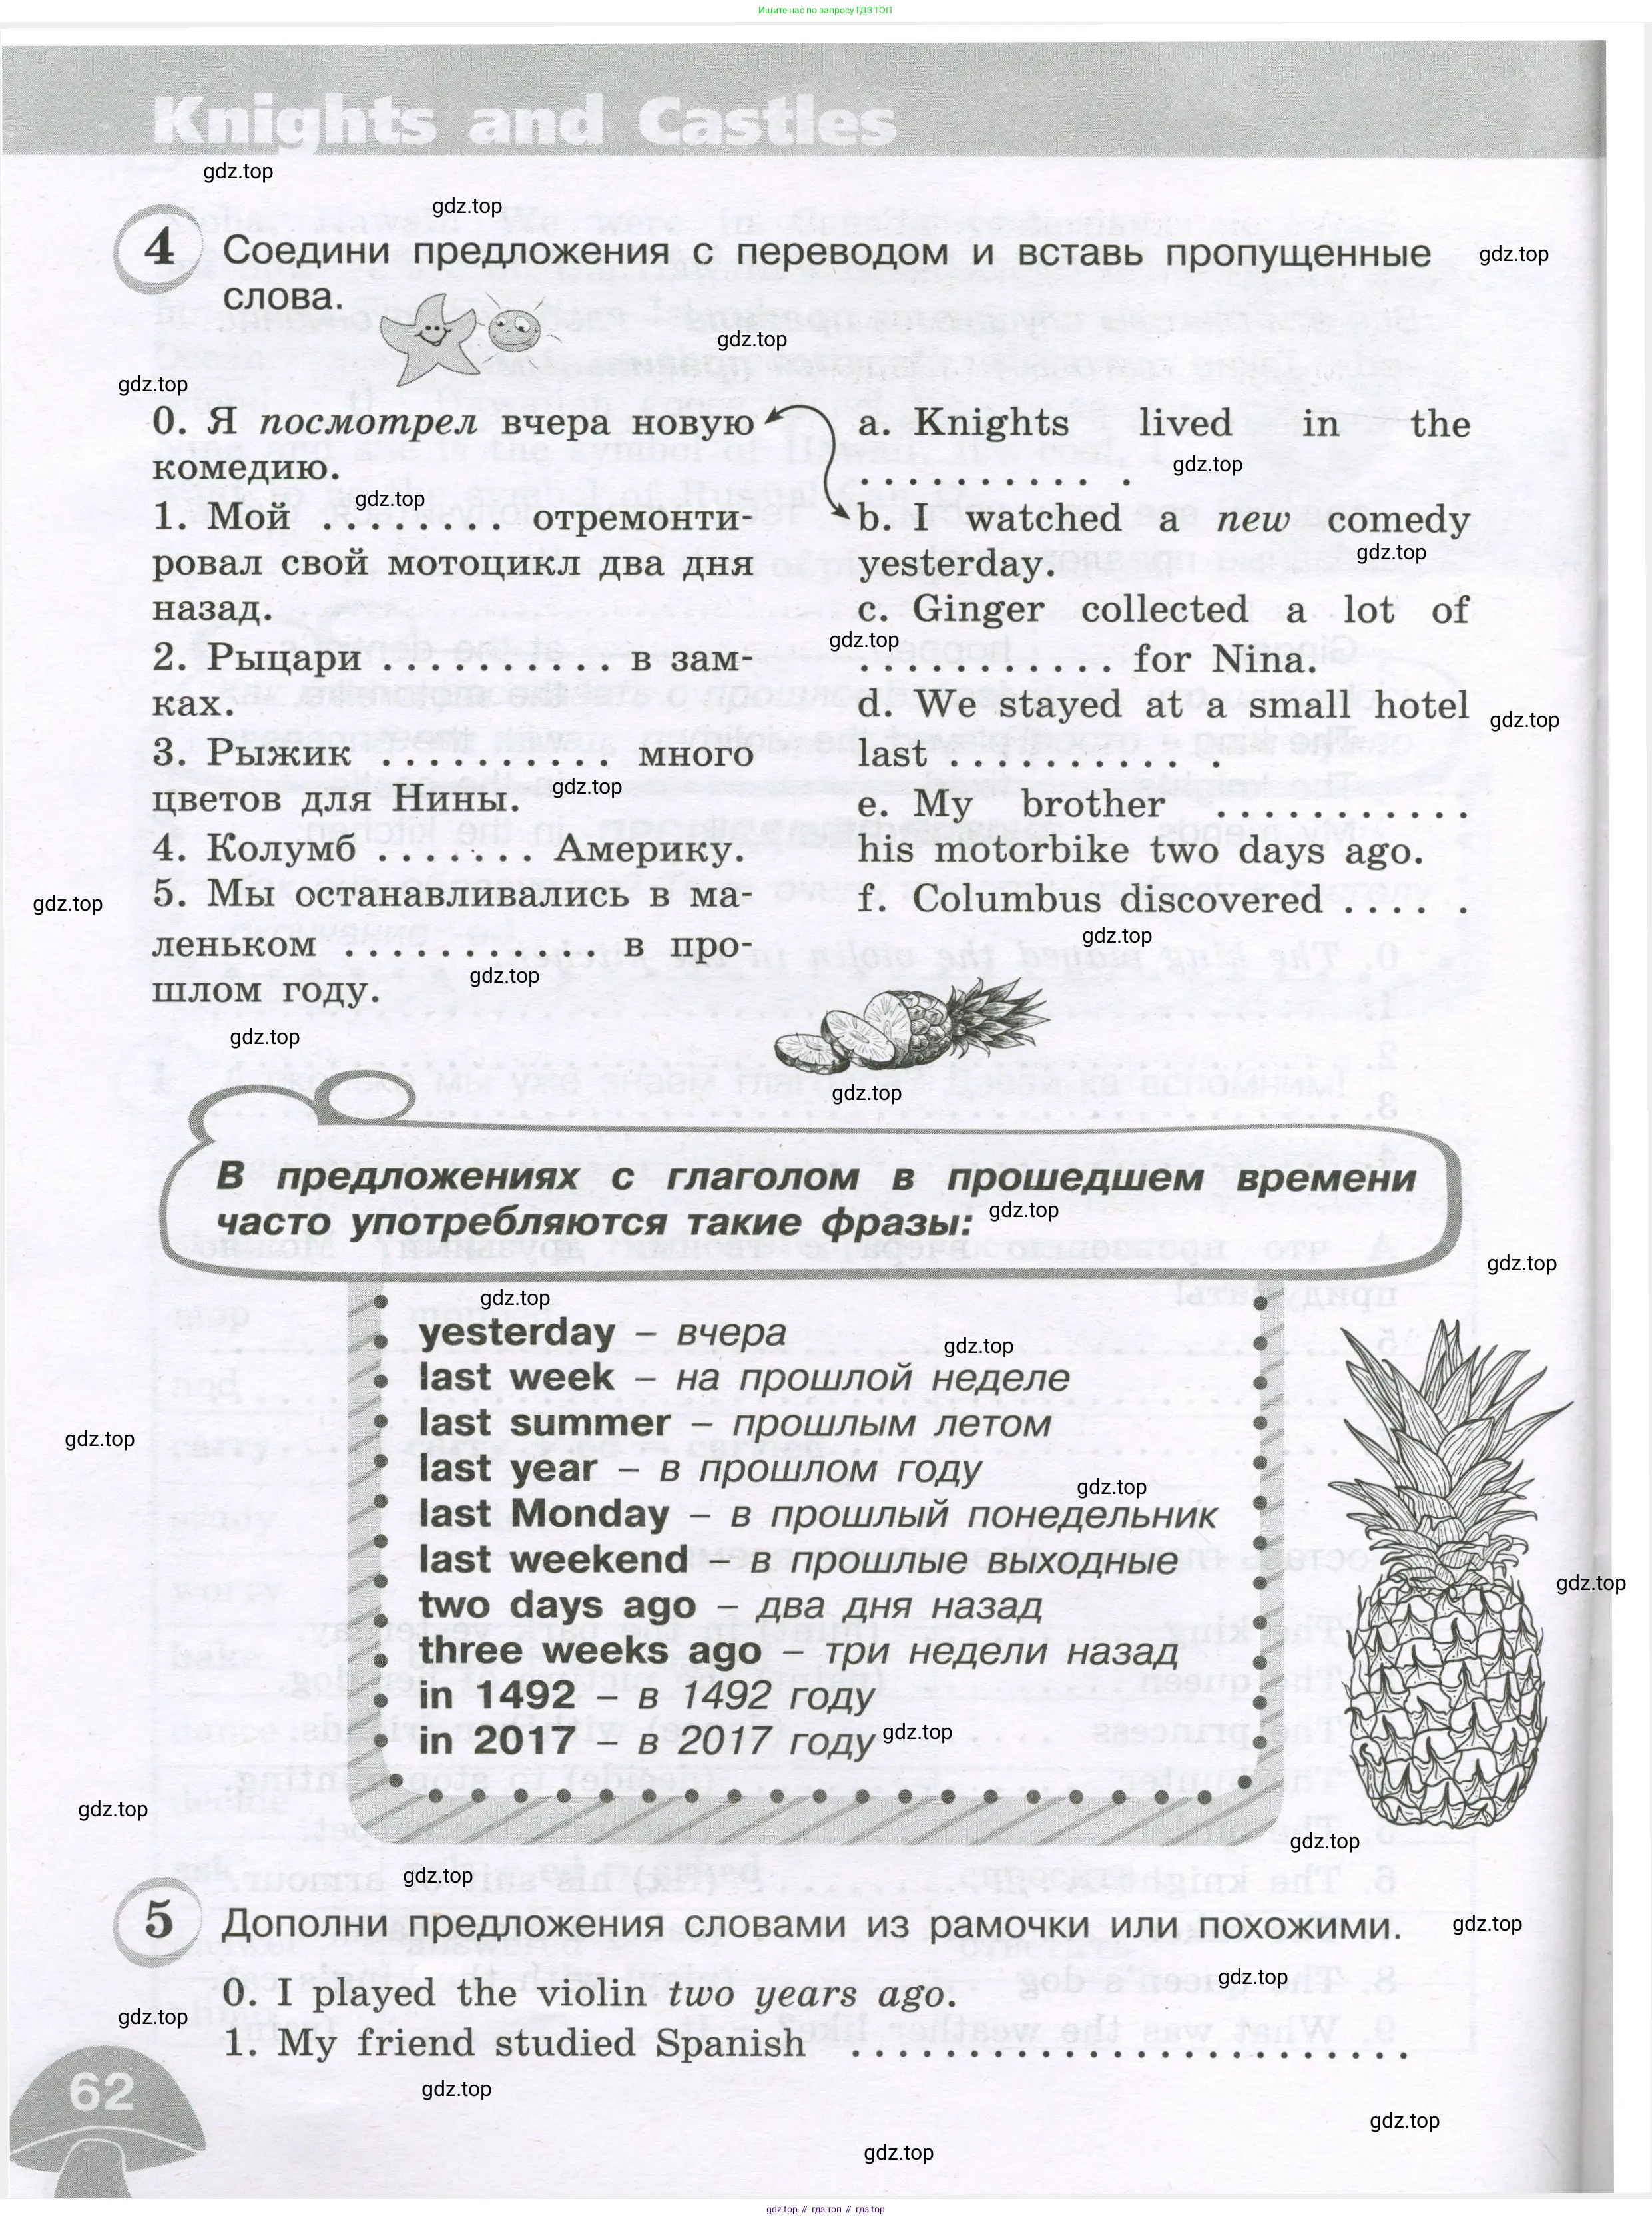 Ищите нас по запросу ГДЗ ТОП
Knights and Castles
gdz.top
gdz.top
4 Соедини предложения с переводом и вставь пропущенные
gdz.top
слова.
gdz.top
gdz.top
0. Я посмотрел вчера новую
комедию.
gdz.top
1. Мой . . . . . . . . отремонти-
ровал свой мотоцикл два дня
назад.
2. Рыцари . . . . . . . . . . в зам-
ках.
3. Рыжик . . . . . . . . . . много
gdz.top
цветов для Нины.
4. Колумб . . . . . . . Америку.
gdz.top
5. Мы останавливались в ма-
леньком . . . . . . . . . . . в про-
gdz.top
шлом году.
gdz.top
a. Knights lived in the
gdz.top
. . . . . . . . . . .
b. I watched a new comedy
gdz.top
yesterday.
c. Ginger collected a lot of
gdz.top
. . . . . . . . . . . for Nina.
d. We stayed at a small hotel
gdz.top
last . . . . . . . . . . .
e. My brother . . . . . . . . . . .
his motorbike two days ago.
f. Columbus discovered . . . . .
gdz.top
gdz.top
В предложениях с глаголом в прошедшем времени
часто употребляются такие фразы:
gdz.top
gdz.top
gdz.top
yesterday – вчера
gdz.top
last week – на прошлой неделе
last summer – прошлым летом
gdz.top
last year – в прошлом году
gdz.top
last Monday – в прошлый понедельник
last weekend – в прошлые выходные
gdz.top
two days ago – два дня назад
three weeks ago – три недели назад
in 1492 – в 1492 году
in 2017 – в 2017 году
gdz.top
gdz.top
gdz.top
gdz.top
5 Дополни предложения словами из рамочки или похожими.
gdz.top
gdz.top
0. I played the violin two years ago.
gdz.top
1. My friend studied Spanish . . . . . . . . . . . . . . . . . . . . . . . .
62
gdz.top
gdz.top
gdz.top
gdz top // гдз топ // gdz top